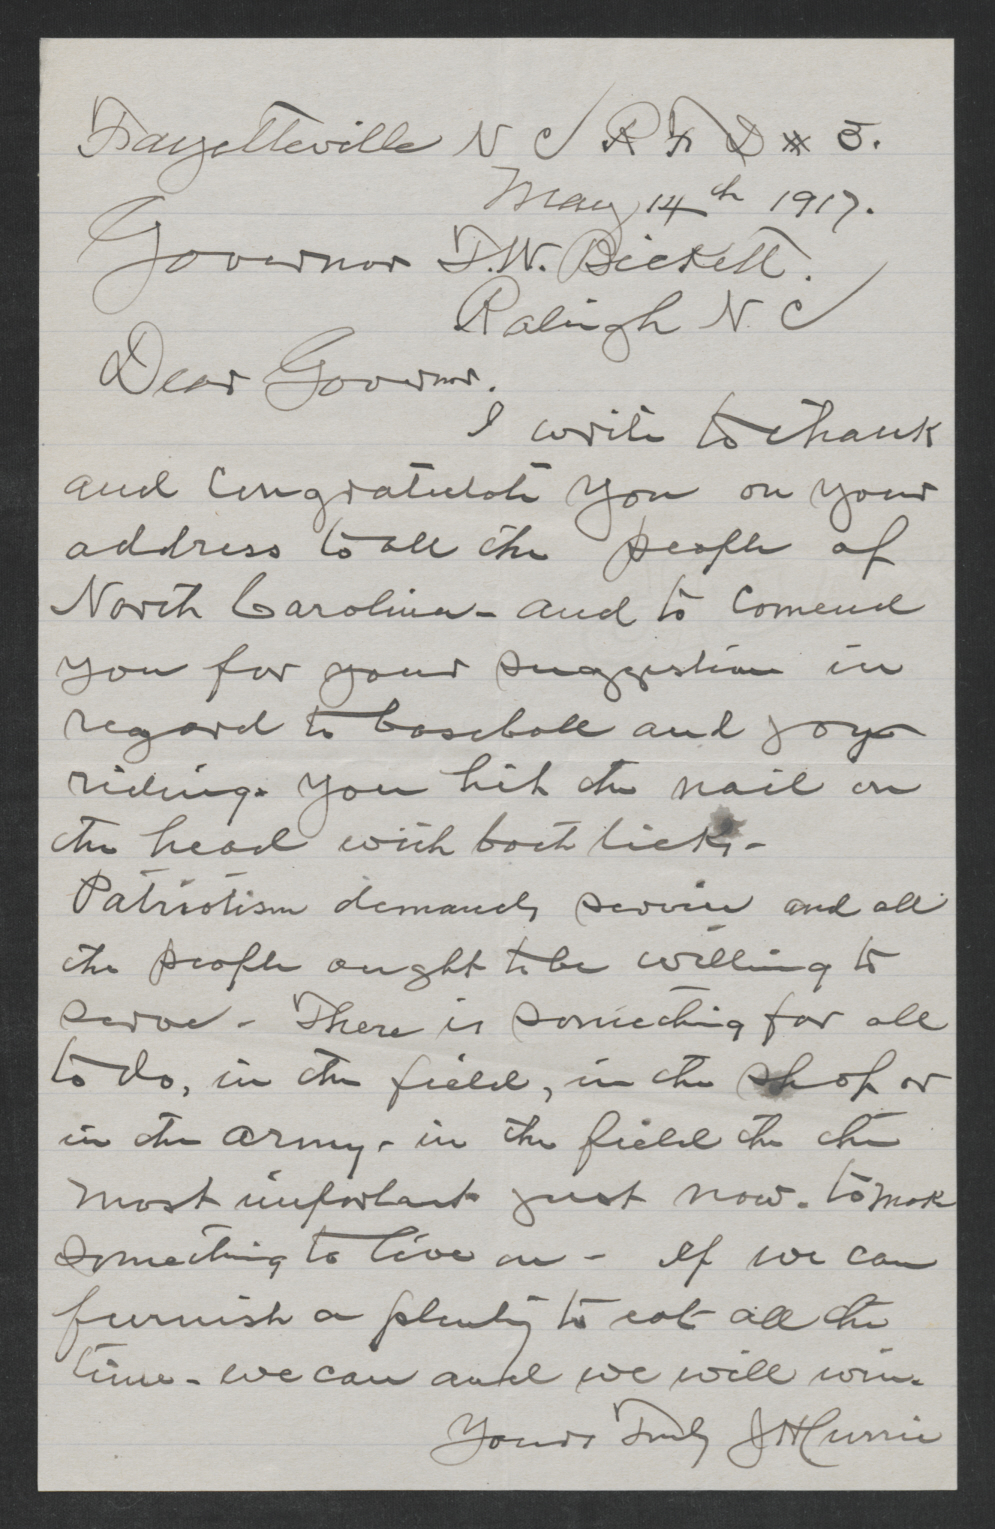 Fayetteville N C R F D # 5.
May 14th 1917.
Governor T.W. Bickett.
Raleigh N. C
Dear Governor.
I write to thank
and congratulate you on your
address to all the people of
North Carolina - and to comend
you for your suggestion in
regard to baseball and joy
riding. You hit the nail on
the head with both licks. -
Patriotism demands service and all
the people ought to be willing to
serve - There is something for all
to do, in the field, in the shop or
in the army - in the field the the
most important just now. to make
something to live on - If we can
furnish a plenty to eat all the
time - we can and we will win.
Yours Truly J H Currie